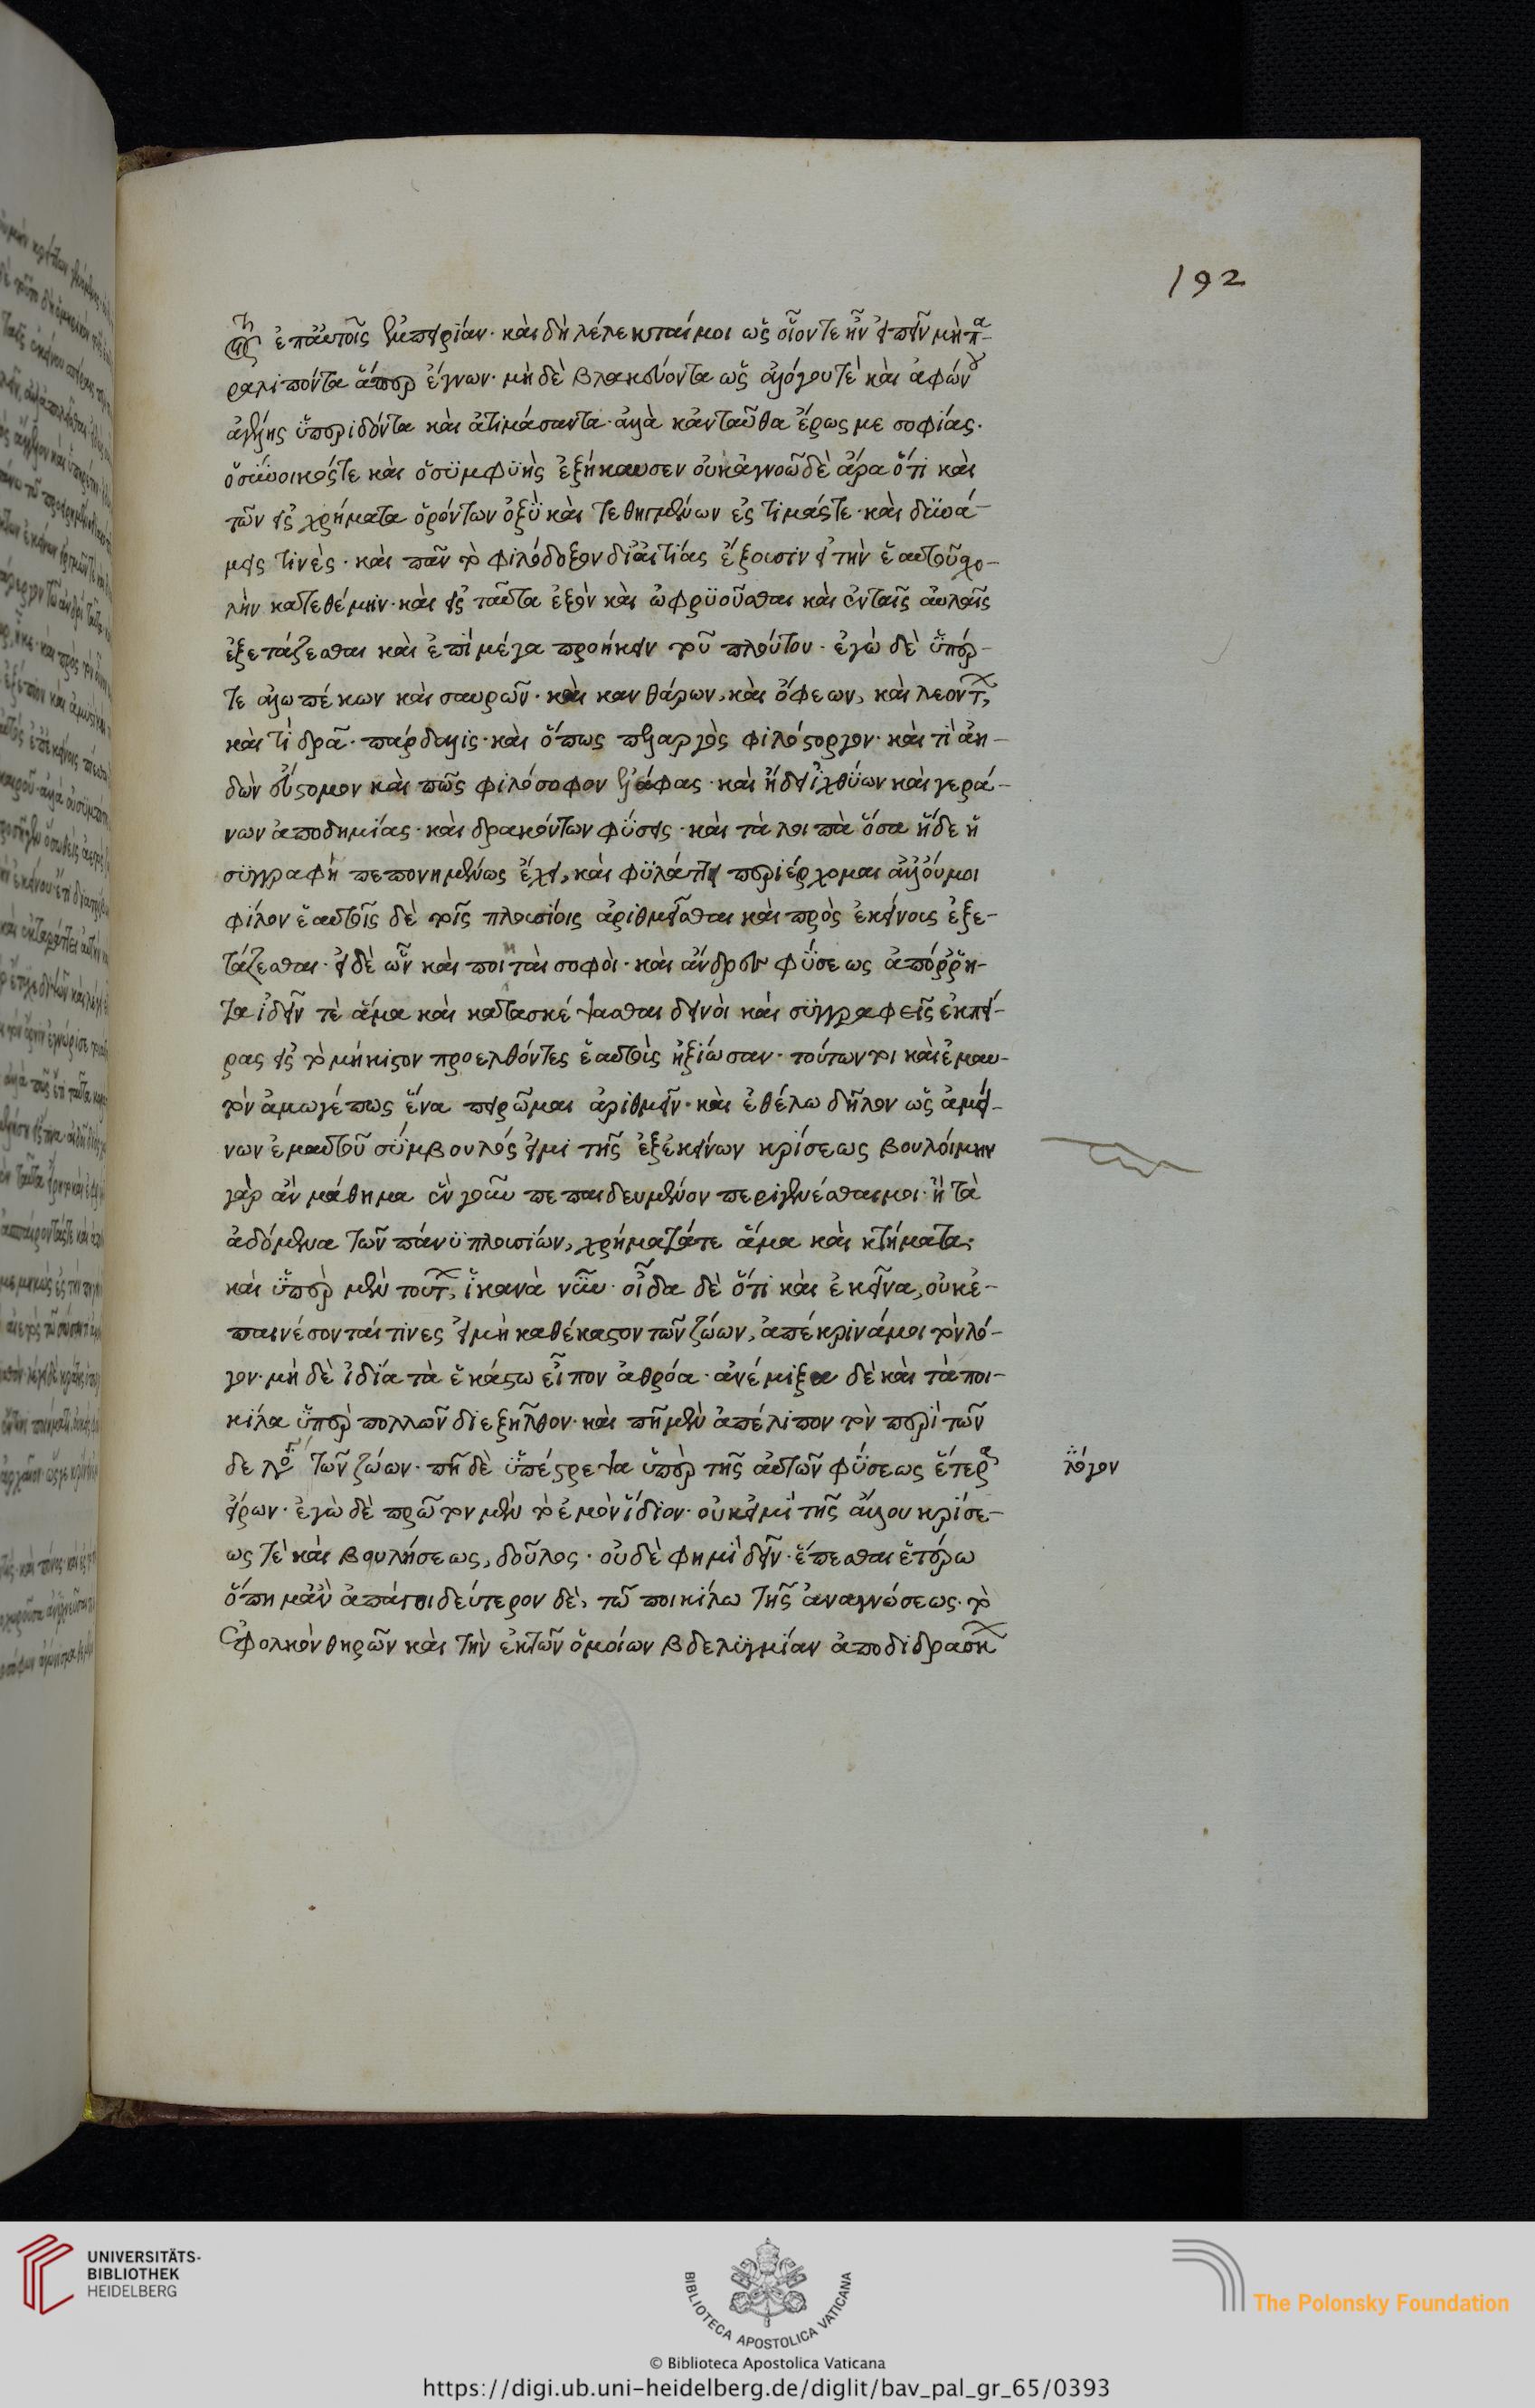 192
της ἐπ᾽ αὐτοῖς ἐμπειρίαν· καὶ δὴ λέλεκταί μοι ὡς οἷόν τε ἦν εἰπεῖν μὴ πα-
ραλιπόντα ἅπερ ἔγνων· μὴ δὲ βλακεύοντα ὡς ἀλόγου τὲ καὶ ἀφώνου
ἀγέλης ὑπεριδόντα καὶ ἀτιμάσαντα· ἀλλὰ κἀνταῦθα ἔρως με σοφίας·
ὁ σύνοικός τε καὶ ὁ συμφυὴς ἐξήκαυσεν οὐκ ἀγνοῶ δὲ ἄρα ὅτι καὶ
τῶν εἰς χρήματα ὁρώντων ὀξὺ καὶ τεθηγμένων ἐς τιμάς τε· καὶ δυνά-
μεις τινὲς· καὶ πᾶν τὸ φιλόδοξον δι᾽ αἰτίας ἕξουσιν εἰ τὴν ἑαυτοῦ σχο-
λὴν κατεθέμην· καὶ εἰς ταῦτα ἐξὸν καὶ ὠφρυοῦσθαι καὶ ἐν ταῖς αὐλαῖς
ἐξετάζεσθαι καὶ ἐπὶ μέγα προήκειν τοῦ πλούτου· ἐγὼ δὲ ὑπέρ-
τε ἀλωπέκων καὶ σαυρῶν· καὶ κανθάρων, καὶ ὄφεων, καὶ λεόντων,
καὶ τί δρᾶ· πάρδαλις· καὶ ὅπως πελαργὸς φιλόστοργον· καὶ τί ἀη-
δὼν εὔστομον καὶ πῶς φιλόσοφον ἐλέφας· καὶ εἴδει ἰχθύων καὶ γερά-
νων ἀποδημίας· καὶ δρακόντων φύσεις· καὶ τὰ λοιπὰ ὅσα ἥδε ἡ
συγγραφὴ πεπονημένως ἔχει, καὶ φυλάττει περιέρχομαι ἀλλ᾽ οὔ μοι
φίλον ἑαυτοῖς δὲ τοῖς πλουσίοις ἀριθμεῖσθαι καὶ πρὸς ἐκείνους ἐξε-
τάζεσθαι· εἰ δὲ ὧν καὶ ποιηταὶ σοφοὶ· καὶ ἄνδρες φύσεως ἀπόρρη-
τα ἰδεῖν τὲ ἅμα καὶ κατασκέψασθαι δεινοὶ καὶ συγγραφεῖς ἐκ πεί-
ρας εἰς τὸ μήκιστον προελθόντες ἑαυτοὺς ἠξίωσαν· τούτων τοι καὶ ἐμαυ-
τὸν ἀμωγέπως ἕνα πειρῶμαι ἀριθμεῖν· καὶ ἐθέλω δῆλον ὡς ἀμεί-
νων ἐμαυτοῦ σύμβουλός εἰμι τῆς ἐξ ἐκείνων κρίσεως βουλοίμην
γὰρ ἂν μάθημα ἓν γοῦν πεπαιδευμένον περιγενέσθαι μοι· ἢ τὰ
ἀδόμενα τῶν πάνυ πλουσίων, χρήματά τε ἅμα καὶ κτήματα·
καὶ ὑπὲρ μὲν τούτων, ἱκανὰ νῦν· οἶδα δὲ ὅτι καὶ ἐκεῖνα, οὐκ ἐ-
παινέσονταί τινες εἰ μὴ καθ᾽ ἕκαστον τῶν ζώων, ἀπέκρινά μοι τὸν λό-
γον· μὴ δὲ ἰδία τὰ ἑκάστω εἶπον ἀθρόα· ἀνέμιξα δὲ καὶ τὰ ποι-
κίλα ὑπὲρ πολλῶν διεξῆλθον· καὶ πῆ μὲν ἀπέλιπον τὸν περὶ τῶν
δε λόγον τῶν ζώων· πῆ δὲ ὑπέστρεψα ὑπὲρ τῆς αὐτῶν φύσεως ἕτερα
εἴρων· ἐγὼ δὲ πρῶτον μὲν τὸ ἐμὸν ἴδιον· οὐκ εἰμὶ τῆς ἄλλου κρίσε-
ως τὲ καὶ βουλήσεως, δοῦλος· οὐδὲ φημὶ δεῖν· ἕπεσθαι ἑτέρω
ὅπη μ᾽ ἂν ἀπάγοι δεύτερον δὲ, τῶ ποικίλω τῆς ἀναγνώσεως· τὸ
ἐφολκὸν θηρῶν καὶ τὴν ἐκ τῶν ὁμοίων βδελυγμίαν ἀποδιδράσκων
λόγον
UNIVERSITÄTS-
BIBLIOTHEK
HEIDELBERG
BIBLIOTECA APOSTOLICA VATICANA
© Biblioteca Apostolica Vaticana
The Polonsky Foundation
https://digi.ub.uni-heidelberg.de/diglit/bav_pal_gr_65/0393